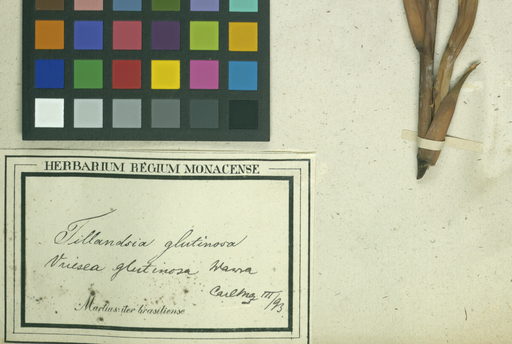 HERBARIUM REGIUM MONACENSE
Tillandsia glutinosa
Vriesea glutinosa Wawra
III/93
Martius: iter brasiliense